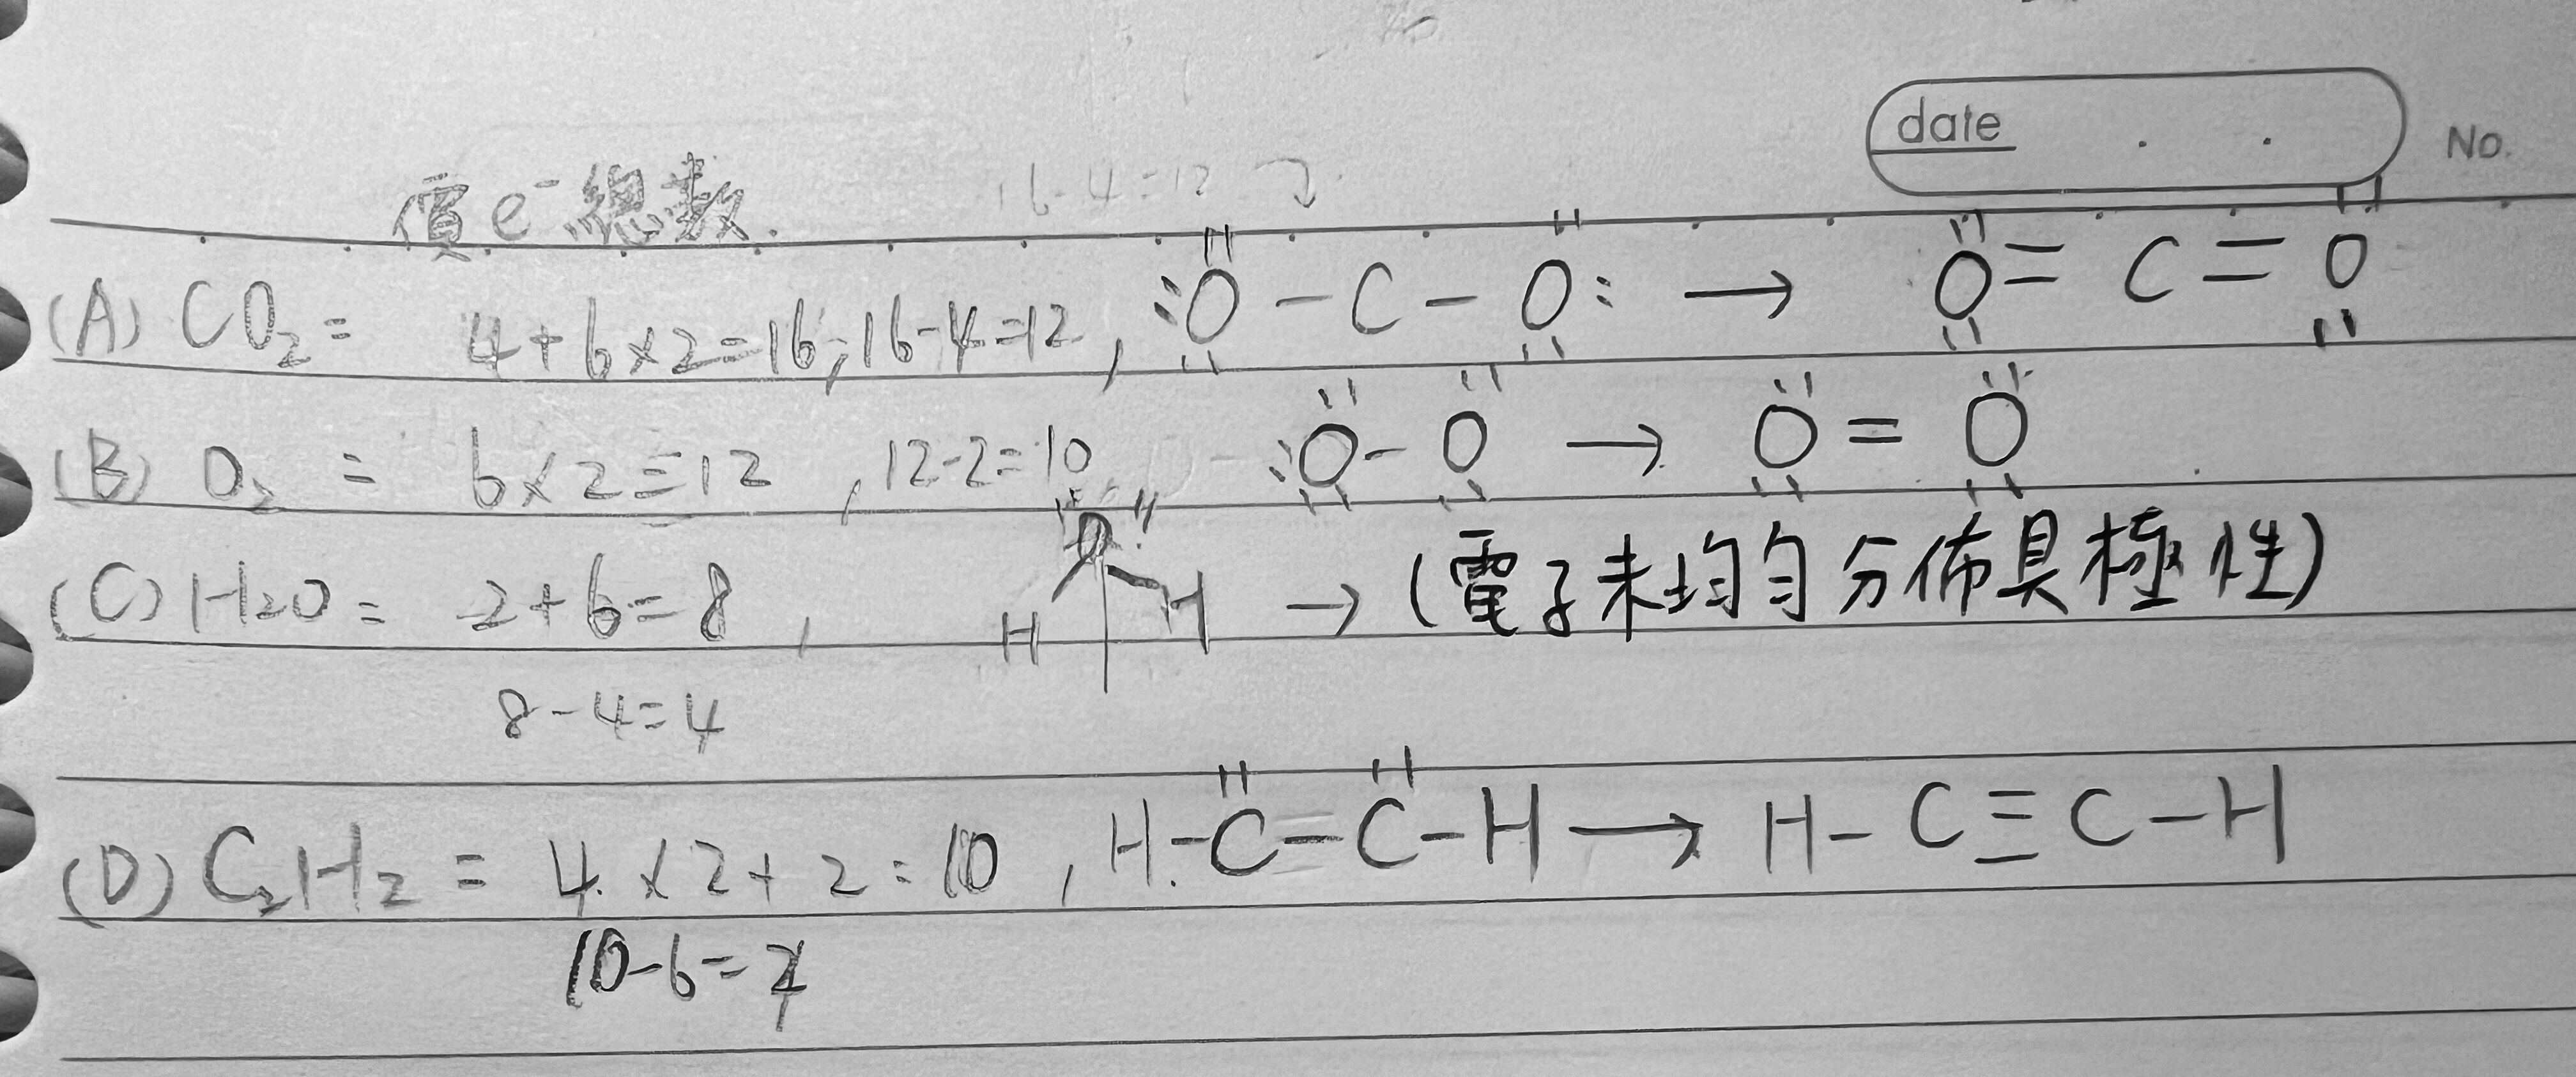 date . . No.
價e⁻總数. 16-4=12
(A) CO₂= 4+6×2=16;16-4=12, :Ö-C-Ö: → Ö=C=Ö
(B) O₂ = 6×2=12 , 12-2=10 :Ö-Ö → Ö=Ö
(C) H₂O= 2+6=8 , H O H → (電子未均勻分佈具極性)
8-4=4
(D) C₂H₂ = 4×2+2=10 , H-C̈-C̈-H → H-C≡C-H
10-6=4